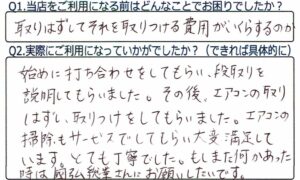 Q1.当店をご利用になる前はどんなことでお困りでしたか？
取りはずしてそれを取りつける費用がいくらするのか
Q2.実際にご利用になっていかがでしたか？（できれば具体的に）
始めに打ち合わせをしてもらい、段取りを
説明してもらいました。その後、エアコンの取り
はずし、取りつけをしてもらいました。エアコンの
掃除もサービスでしてもらい大変満足して
います。とても丁寧でした。もしまた何かあった
時は さんにお願いしたいです。